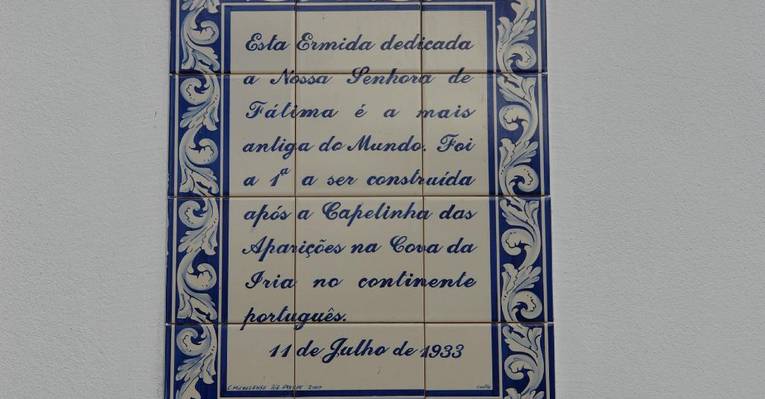 Esta Ermida dedicada
a Nossa Senhora de
Fátima é a mais
antiga do Mundo. Foi
a 1ª a ser construída
após a Capelinha das
Aparições na Cova da
Iria no continente
português.
11 de Julho de 1933